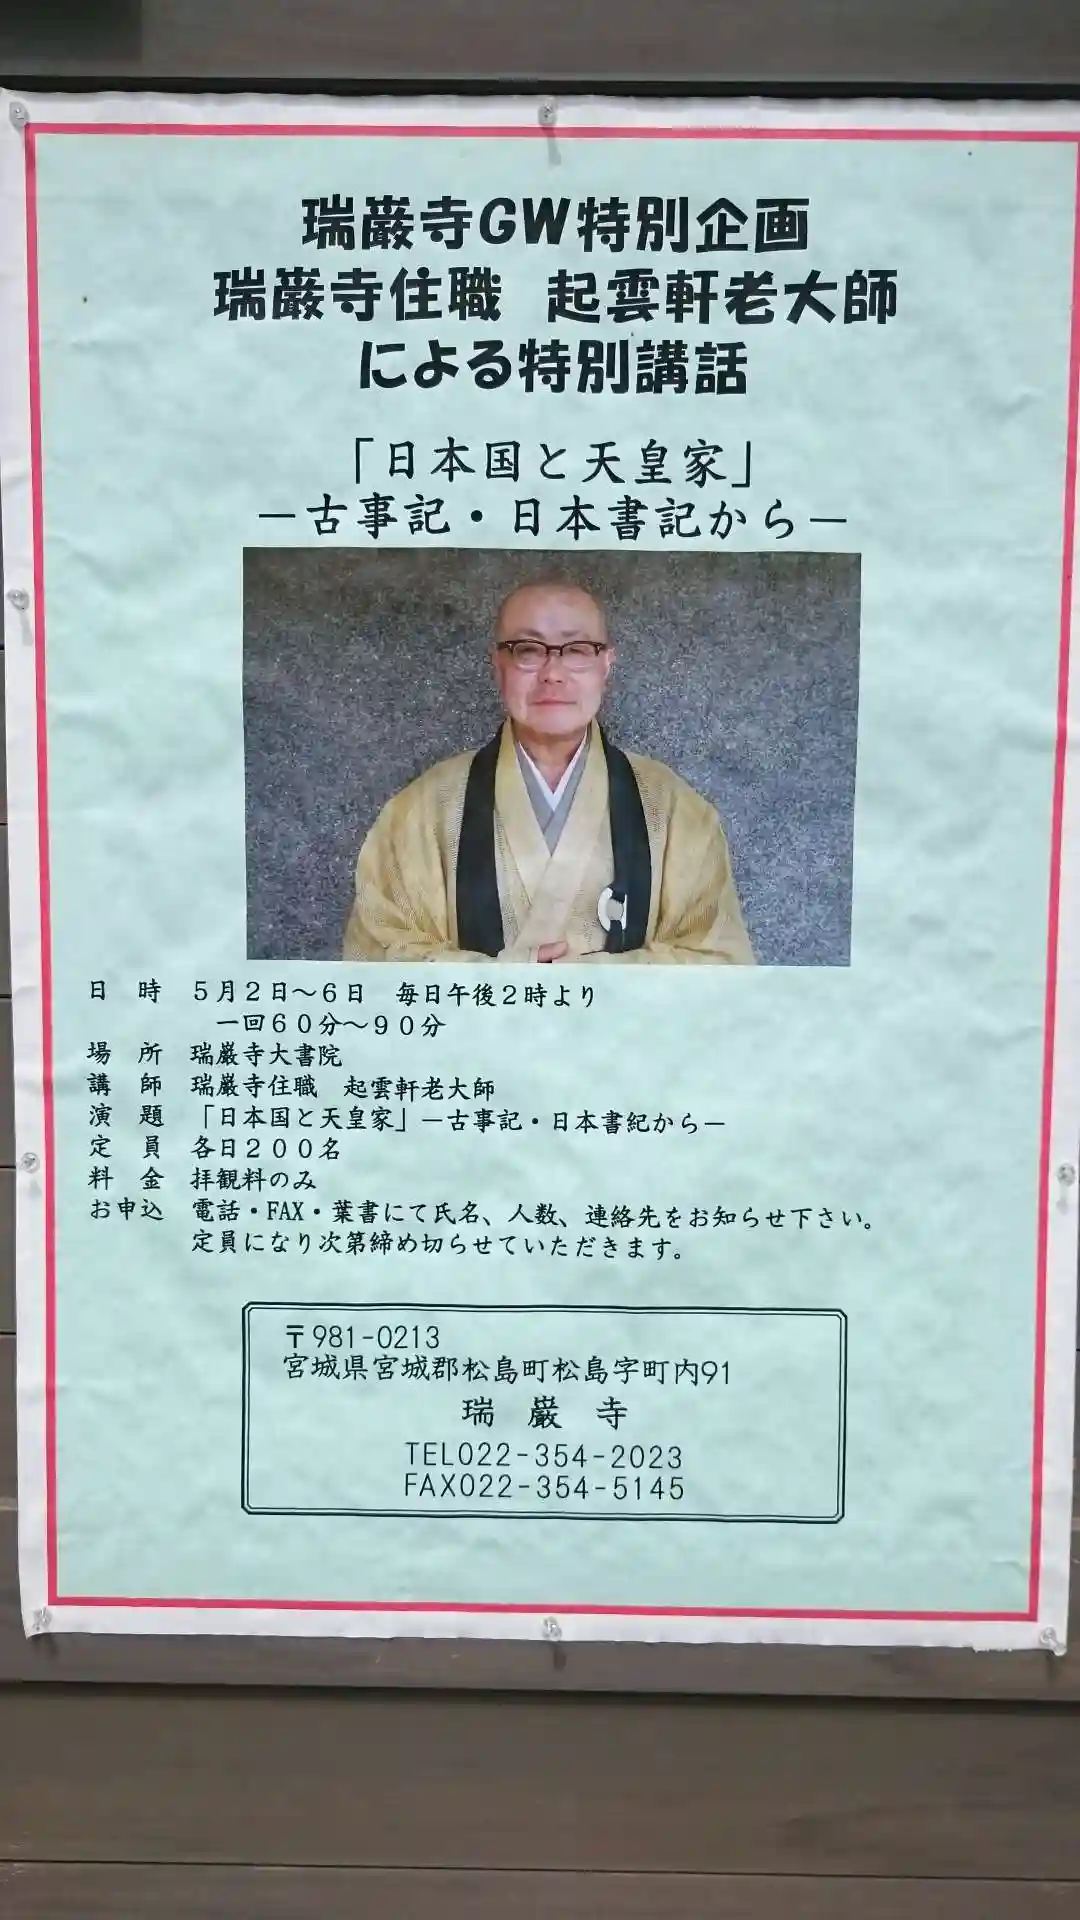 瑞巌寺GW特別企画
瑞巌寺住職　起雲軒老大師
による特別講話
「日本国と天皇家」
－古事記・日本書記から－
日　時　５月２日～６日　毎日午後２時より
一回６０分～９０分
場　所　瑞巌寺大書院
講　師　瑞巌寺住職　起雲軒老大師
演　題　「日本国と天皇家」－古事記・日本書紀から－
定　員　各日２００名
料　金　拝観料のみ
お申込　電話・FAX・葉書にて氏名、人数、連絡先をお知らせ下さい。
定員になり次第締め切らせていただきます。
〒981-0213
宮城県宮城郡松島町松島字町内91
瑞　巌　寺
TEL022-354-2023
FAX022-354-5145